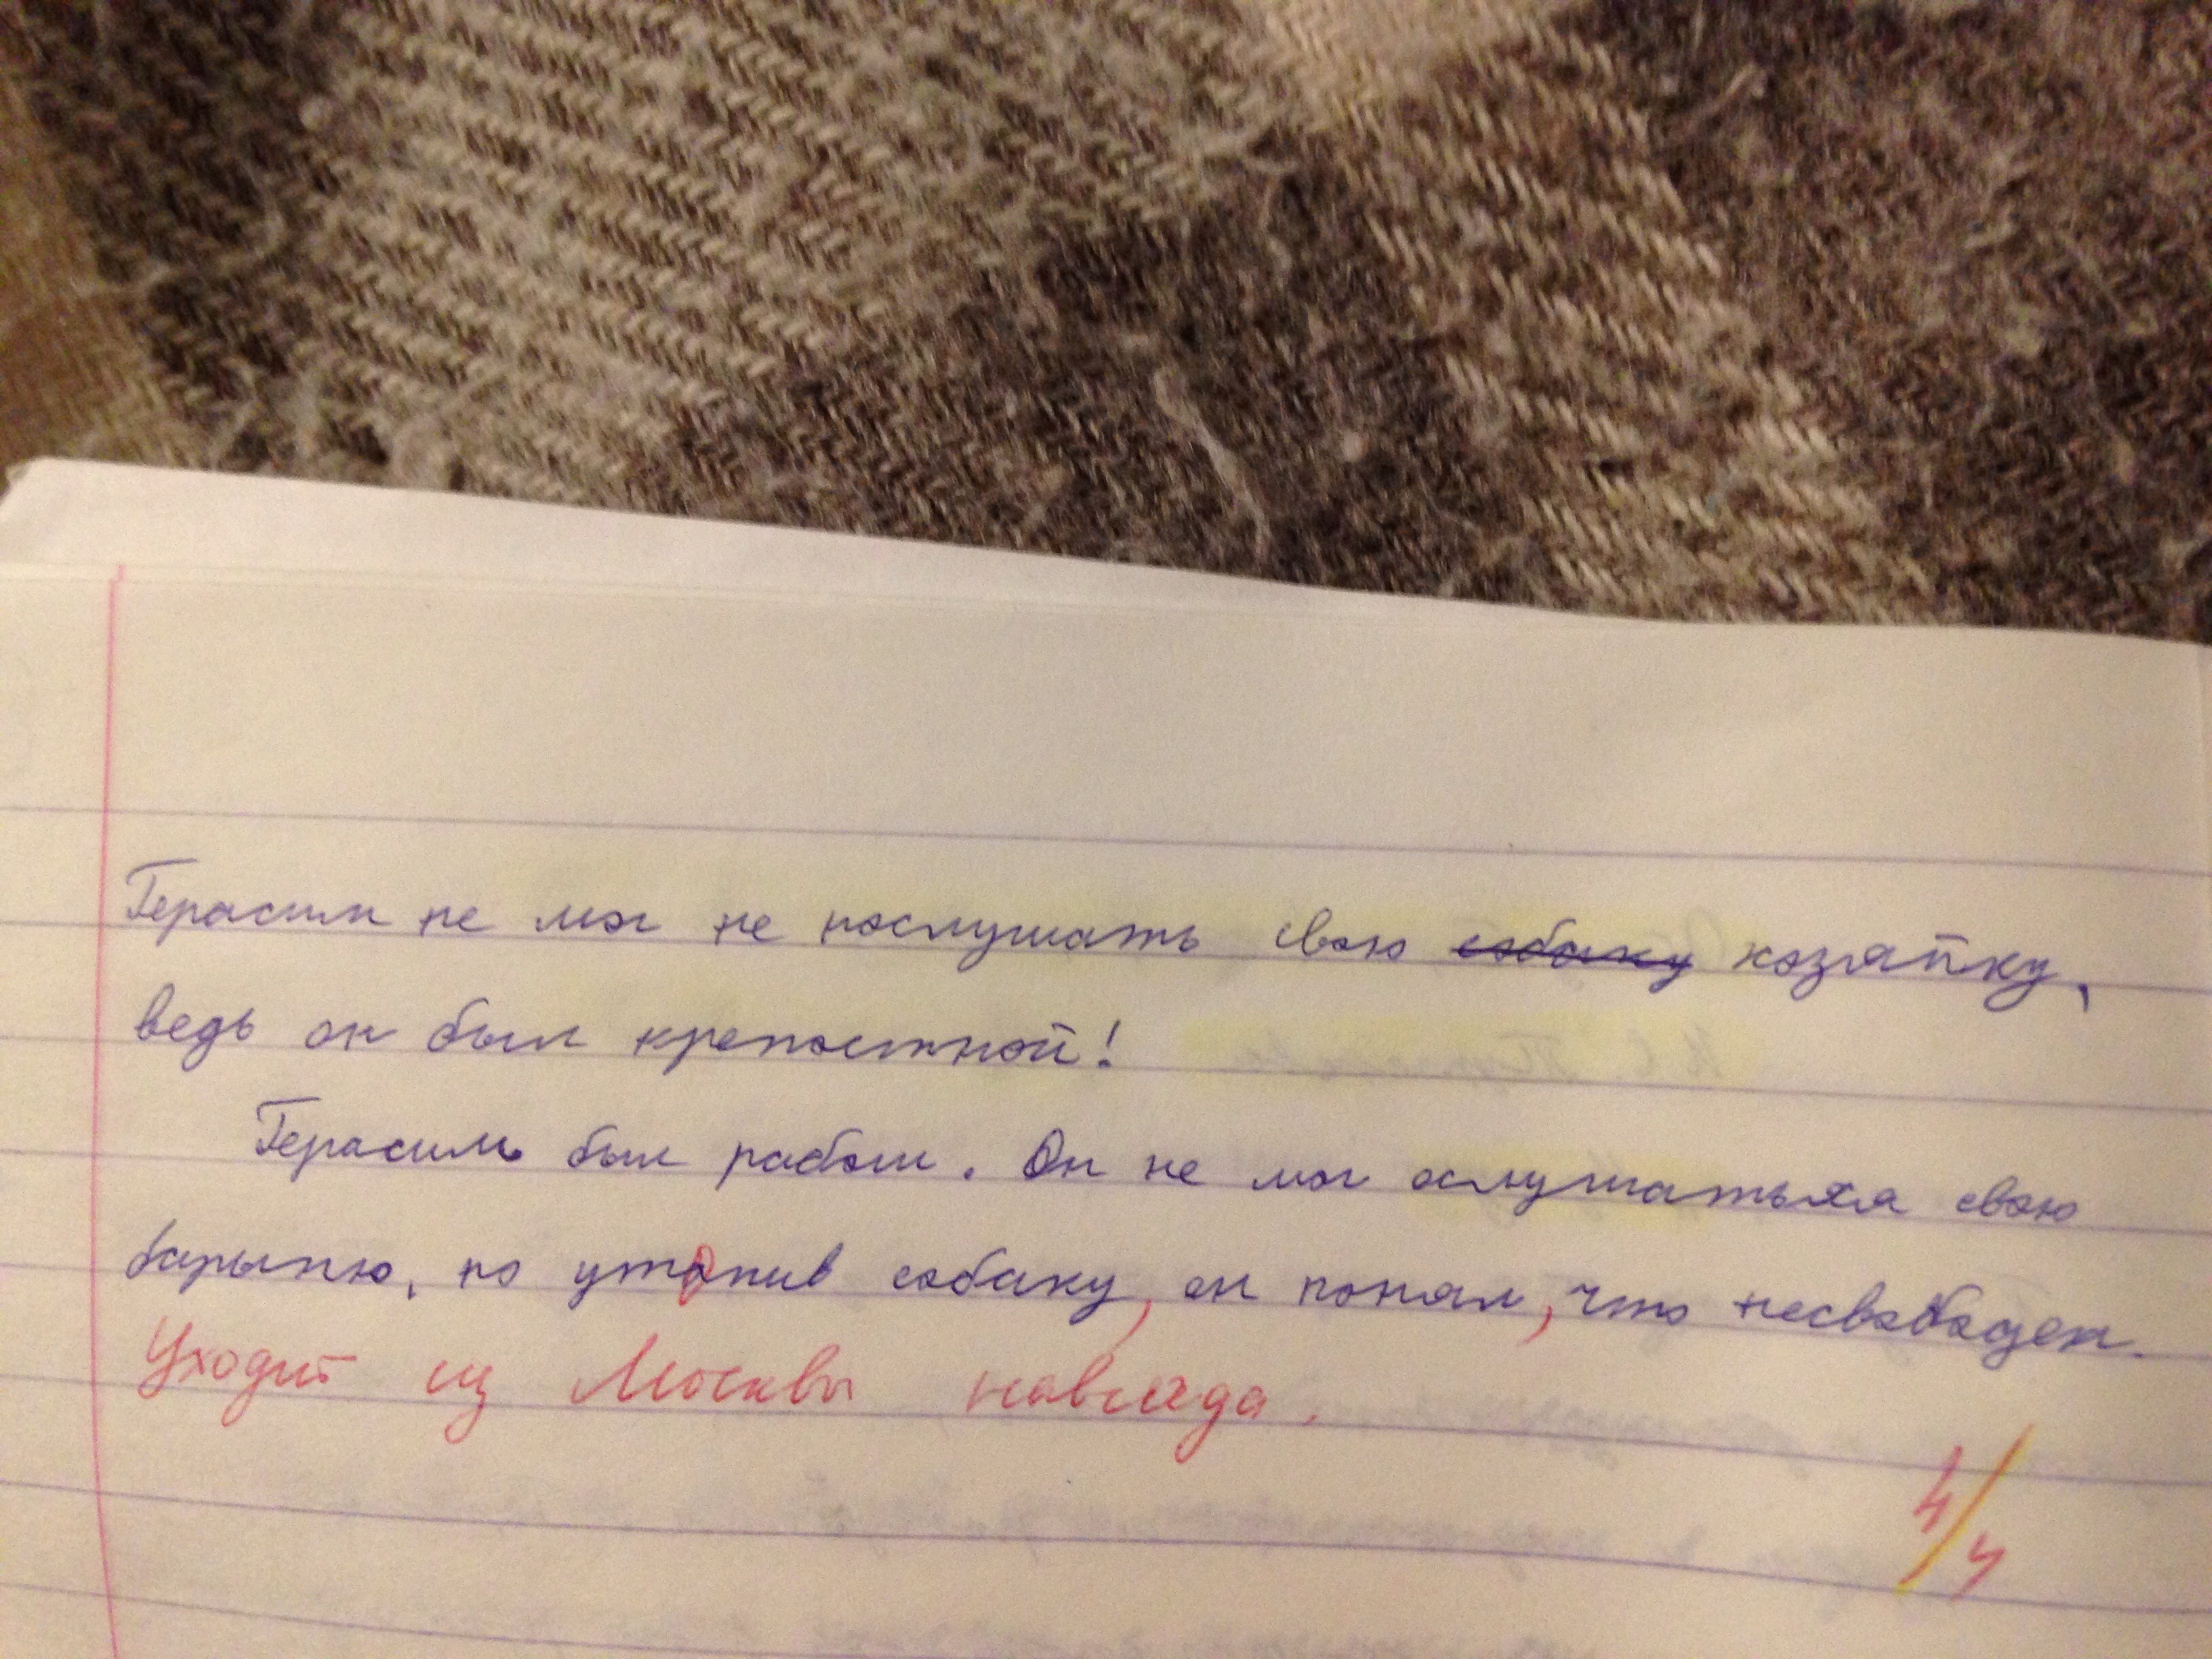 Герасим не мог не послушать свою собаку хозяйку,
ведь он был крепостной!
Герасим был рабом. Он не мог ослушаться свою
барыню, но утопив собаку, он понял, что несвободен.
Уходит из Москвы навсегда.
4/4